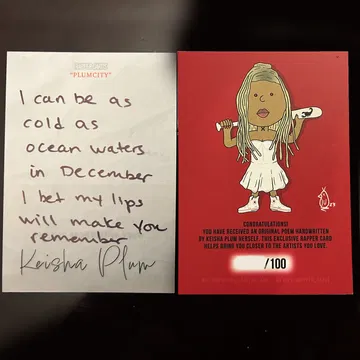 "PLUMCITY"
I can be as
cold as
ocean waters
in December
I bet my lips
will make you
remember
Keisha Plum
CONGRATULATIONS!
YOU HAVE RECEIVED AN ORIGINAL POEM HANDWRITTEN
BY KEISHA PLUM HERSELF. THIS EXCLUSIVE RAPPER CARD
HELPS BRING YOU CLOSER TO THE ARTISTS YOU LOVE.
/100